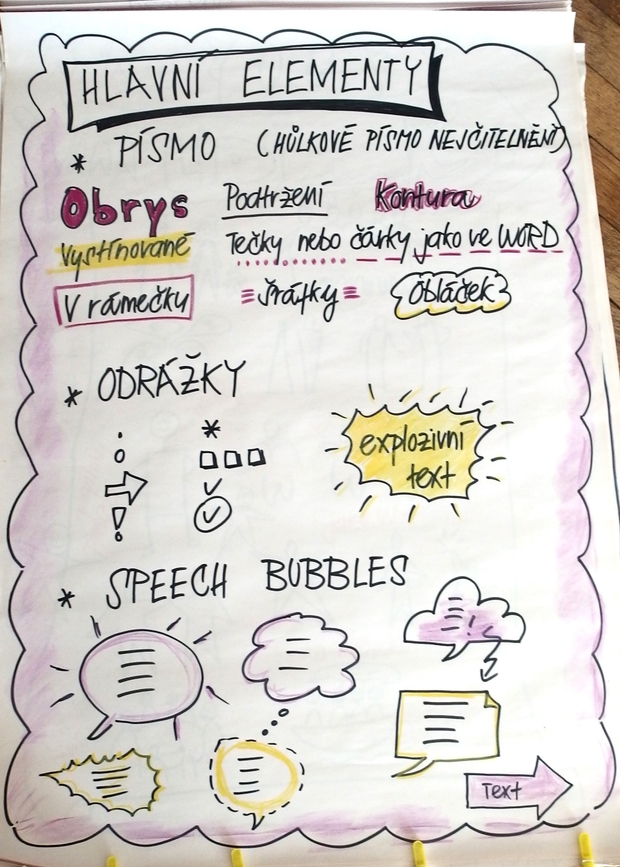 HLAVNÍ ELEMENTY
* PÍSMO (HŮLKOVÉ PÍSMO NEJČITELNĚNÍ)
Obrys Podtržení Kontura
Vystínované Tečky nebo čárky jako ve WORD
V rámečku Šrafky Obláček
* ODRÁŽKY
explozivní
text
* SPEECH BUBBLES
Text